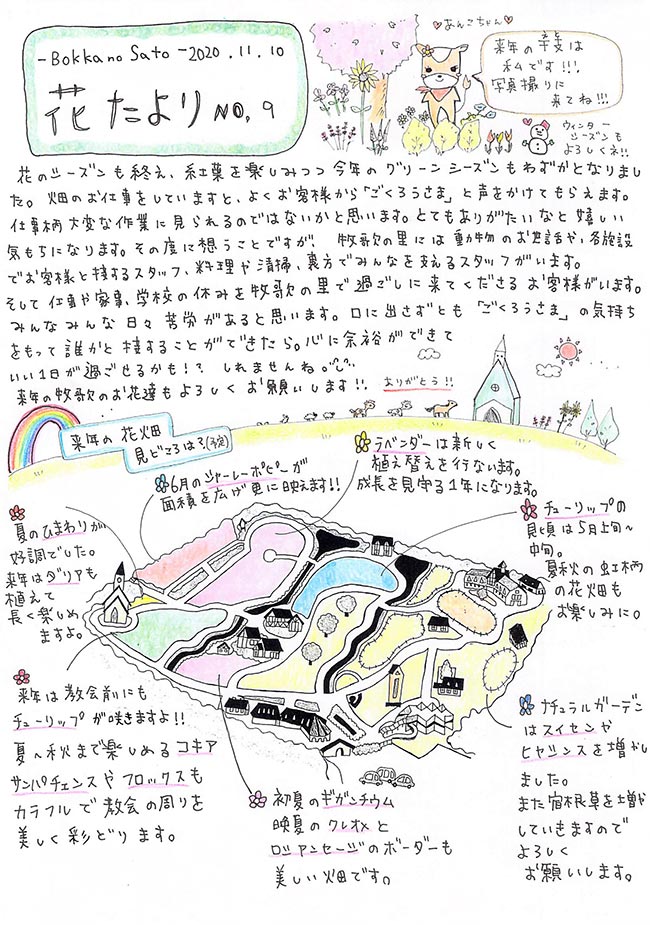 -Bokkano Sato-2020.11.10
花たよりNO,9
あんこちゃん
来年の干支は
私です!!!
写真撮りに
来てね!!!
ウィンター
シーズンも
よろしくネ!!
花のシーズンも終え、紅葉を楽しみつつ今年のグリーンシーズンもわずかとなりまし
た。畑のお仕事をしていますと、よくお客様から「ごくろうさま」と声をかけてもらえます。
仕事柄大変な作業に見られるのではないかと思います。とてもありがたいなと嬉しい
気もちになります。その度に想うことですが、牧歌の里には動物のお世話や、各施設
でお客様と接するスタッフ、料理や清掃、裏方でみんなを支えるスタッフがいます。
そして仕事や家事、学校の休みを牧歌の里で過ごしに来てくださるお客様がいます。
みんなみんな日々苦労があると思います。口に出さずとも「ごくろうさま」の気持ち
をもって誰かと接することができたら。心に余裕ができて
いい1日が過ごせるかも!?しれませんね。
来年の牧歌のお花達もよろしくお願いします!!ありがとう!!
来年の花畑
見どころは?(予定)
6月のシャーレーポピーが
面積を広げ更に映えます!!
ラベンダーは新しく
植え替えを行ないます。
成長を見守る1年になります。
夏のひまわりが
好調でした。
来年はダリアも
植えて
長く楽しめ
ますよ。
チューリップの
見頃は5月上旬〜
中旬。
夏秋の虹柄
の花畑も
お楽しみに。
来年は教会前にも
チューリップが咲きますよ!!
夏〜秋まで楽しめるコキア
サンパチェンスやフロックスも
カラフルで教会の周りを
美しく彩どります。
初夏のギガンチウム
晩夏のクレオメと
ロシアンセージのボーダーも
美しい畑です。
ナチュラルガーデン
はスイセンや
ヒヤシンスを増やし
ました。
また宿根草を増や
していきますので
よろしく
お願いします。